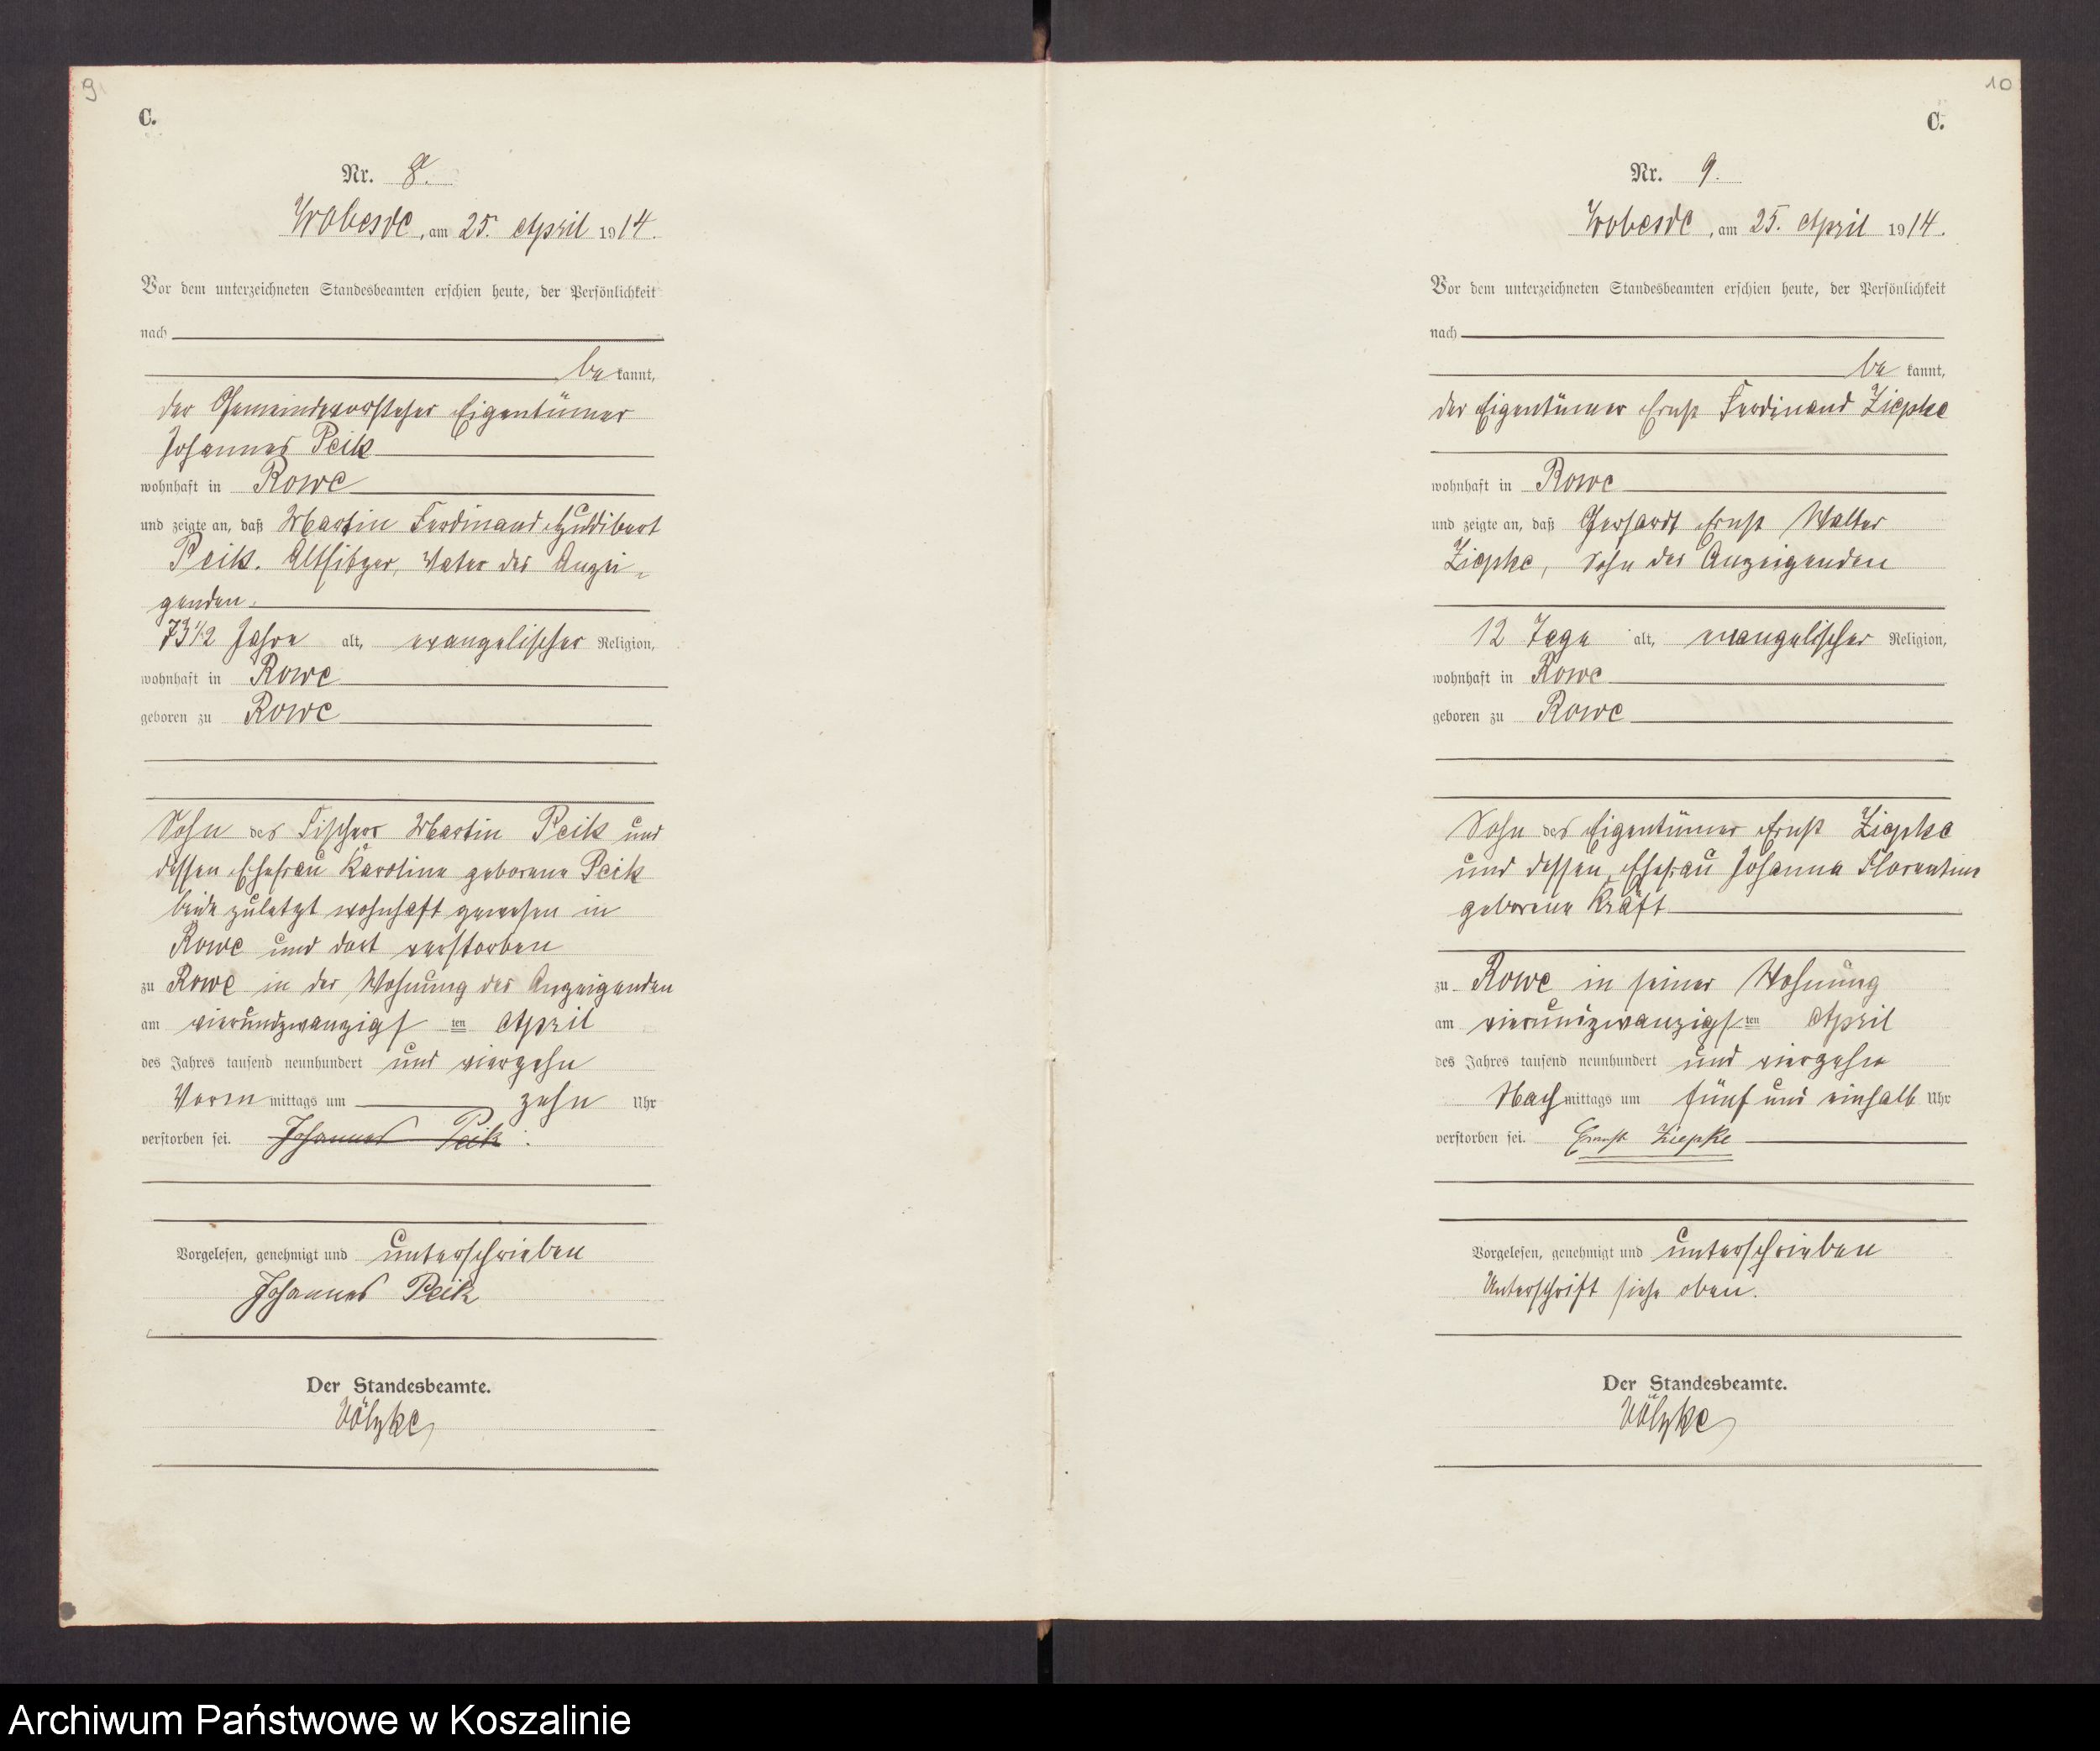 9
C.
Nr. 8.
Wobesde, am 25. April 1914.
Vor dem unterzeichneten Standesbeamten erschien heute, der Persönlichkeit
nach
be kannt,
der Gemeindevorsteher Eigentümer
Johannes Peik
wohnhaft in Rowe
und zeigte an, daß Martin Ferdinand
Peik. Altsitzer, Vater des Anzei-
genden.
73 1/2 Jahre alt, evangelischer Religion,
wohnhaft in Rowe
geboren zu Rowe
Sohn des Fischers Martin Peik und
dessen Ehefrau Karoline geborene Peik
beide zuletzt wohnhaft gewesen in
Rowe und dort verstorben
zu Rowe in der Wohnung des Anzeigenden
am vierundzwanzigsten April
des Jahres tausend neunhundert und vierzehn
Vormittags um zehn Uhr
verstorben sei. Johannes Peik.
Vorgelesen, genehmigt und unterschrieben
Johannes Peik
Der Standesbeamte.
Völzke
10
C.
Nr. 9.
Wobesde, am 25. April 1914.
Vor dem unterzeichneten Standesbeamten erschien heute, der Persönlichkeit
nach
be kannt,
der Eigentümer Ernst Ferdinand Ziepke
wohnhaft in Rowe
und zeigte an, daß Gerhardt Ernst Walter
Ziepke, Sohn des Anzeigenden
12 Tage alt, evangelischer Religion,
wohnhaft in Rowe
geboren zu Rowe
Sohn des Eigentümer Ernst Ziepke
und dessen Ehefrau Johanna Florentine
geborene Kräft
zu Rowe in seiner Wohnung
am vierundzwanzigsten April
des Jahres tausend neunhundert und vierzehn
Nachmittags um fünf und einhalb Uhr
verstorben sei. Ernst Ziepke
Vorgelesen, genehmigt und unterschrieben
Unterschrift siehe oben.
Der Standesbeamte.
Völzke
Archiwum Państwowe w Koszalinie